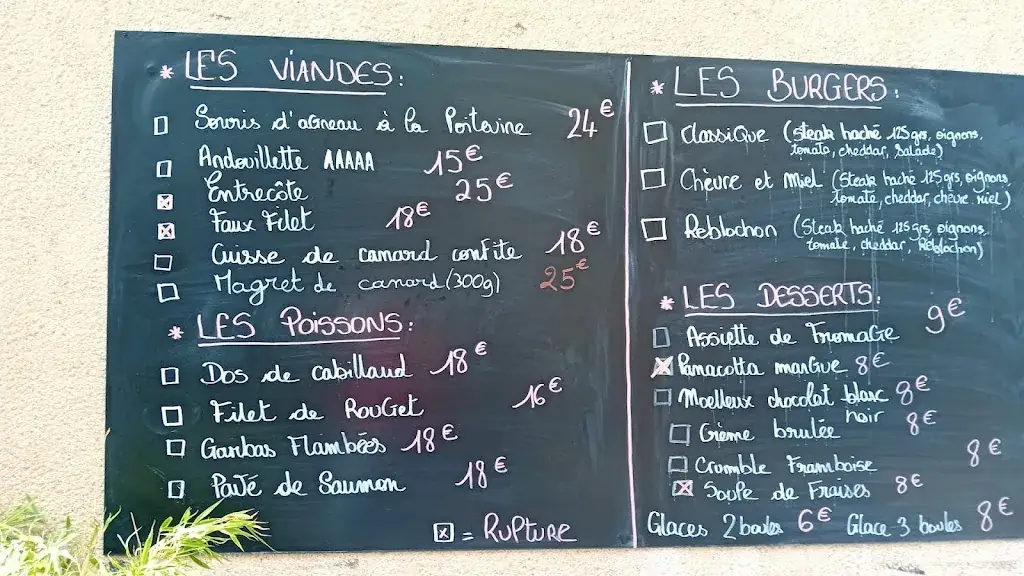 * LES VIANDES:
Souris d'agneau à la Poitevine 24€
Andouillette AAAAA 15€
Entrecôte 25€
Faux Filet 18€
Cuisse de canard confite 18€
Magret de canard (300g) 25€
* LES POISSONS:
Dos de cabillaud 18€
Filet de RouGet 16€
Gambas Flambées 18€
Pavé de Saumon 18€
☒ = RUPTURE
* LES BURGERS:
Classique (steak haché 125grs, oignons,
tomate, cheddar, Salade)
Chèvre et Miel (Steak haché 125grs, oignons
tomate, cheddar, chèvre miel)
Reblochon (Steak haché 125grs oignons
tomate, cheddar, Reblochon)
* LES DESSERTS:
Assiette de FromaGe 9€
Panacotta manGue 8€
Moelleux chocolat blanc 8€
noir
Crème brulée 8€
Crumble Framboise 8€
Soupe de Fraises 8€
Glaces 2 boules 6€ Glace 3 boules 8€